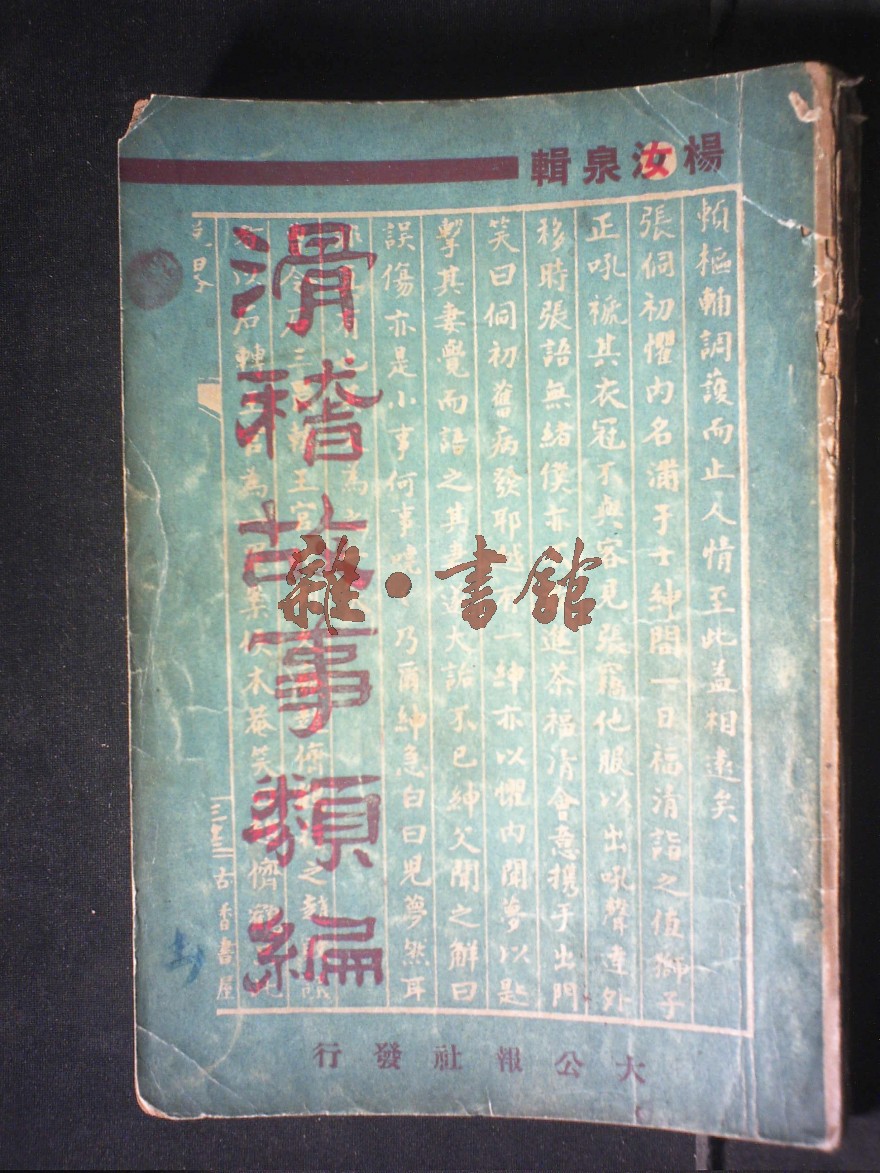 楊汝泉輯
賴樞輔調護而止人情至此蓋相遠矣
張侗初懼內名滿于士紳間一日福清詣之值獅子
正吼褫其衣冠不與客見張竊他服以出吼聲達外
移時張語無緒僕亦進茶福清會意携手出門
笑曰侗初舊病發耶一紳亦以懼內聞夢以匙
擊其妻覺而語之其妻大詬不已紳父聞之解曰
誤傷亦是小事何事嘵乃爾紳急白曰兒夢然耳
滑稽故事類編
古香書屋
雜·書館
大公報社發行